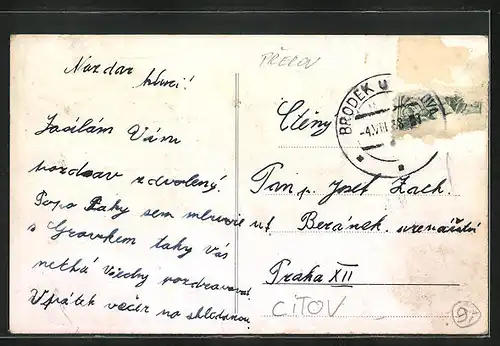 Nazdar
kluci!
Zasílám Vám
pozdrav z dvolený.
Pepo taky sem mluvil
s Frankem taky Vás
nechá všechny pozdravovat.
V pátek večír na shledanou.
PŘEROV
BRODEK u
-4.VIII.
Ctěný
Pan p. Josef Zach.
ut. Beránek. uzenářství
Praha XII
CITOV